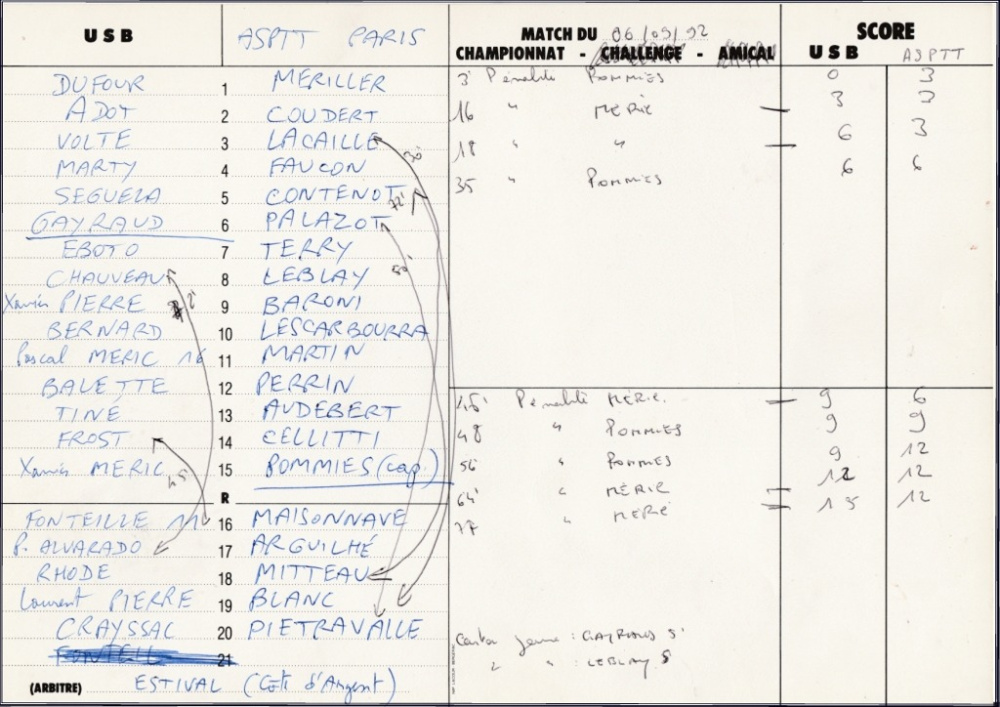 USB ASPTT PARIS MATCH DU 06/09/92 SCORE
CHAMPIONNAT - CHALLENGE - AMICAL USB ASPTT
DUFOUR 1 MERILLER 3' Pénalité POMMIES 0 3
ADOT 2 COUDERT 16 " MERIC 3 3
VOLTE 3 LACAILLE 18 " " 6 3
MARTY 4 FAUCON 35 " POMMIES 6 6
SEGUELA 5 CONTENOT
GAYRAUD 6 PALAZOT
EBOTO 7 TERRY
CHAUVEAU 8 LEBLAY
Xavier PIERRE 9 BARONI
BERNARD 10 LESCARBOURRA
Pascal MERIC 16 11 MARTIN
BALETTE 12 PERRIN 45' Pénalité MÉRIC 9 6
TINÉ 13 AUDEBERT 48 " POMMIES 9 9
FROST 14 CELLITTI 56 " POMMIES 9 12
Xavier MERIC 15 POMMIES (cap.) 64' " MÉRIC 12 12
R 77 " MERIC 15 12
FONTEILLE 11 16 MAISONNAVE
P. ALVARADO 17 ARGUILHÉ
RHODE 18 MITTEAU
Laurent PIERRE 19 BLANC
CRAYSSAC 20 PIETRAVALLE
Carton jaune : GAYRAUD 5'
" " : LEBLAY 5
FONTEILL 21
(ARBITRE) ESTIVAL (Côte d'Argent)